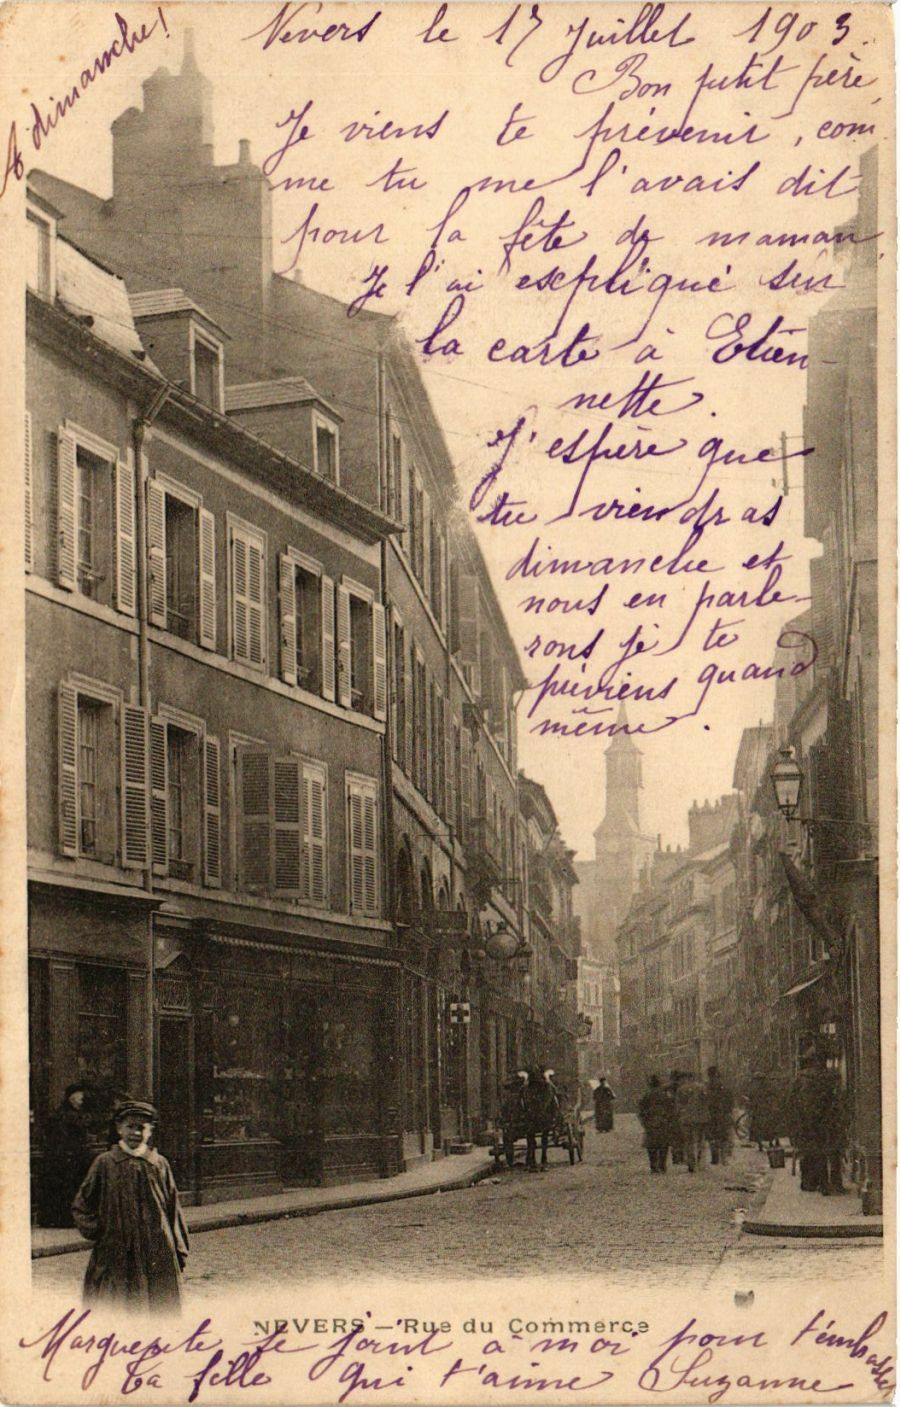 A dimanche!
Nevers le 17 Juillet 1903.
Bon petit père,
Je viens te prévenir, com
me tu me l'avais dit
pour la fête de maman
Je l'ai expliqué sur
la carte à Etien-
nette.
J'espère que
tu viendras
dimanche et
nous en parle-
rons je te
préviens quand
même.
NEVERS — Rue du Commerce
Marguerite se joint à moi pour t'embrasser
ta fille qui t'aime Suzanne